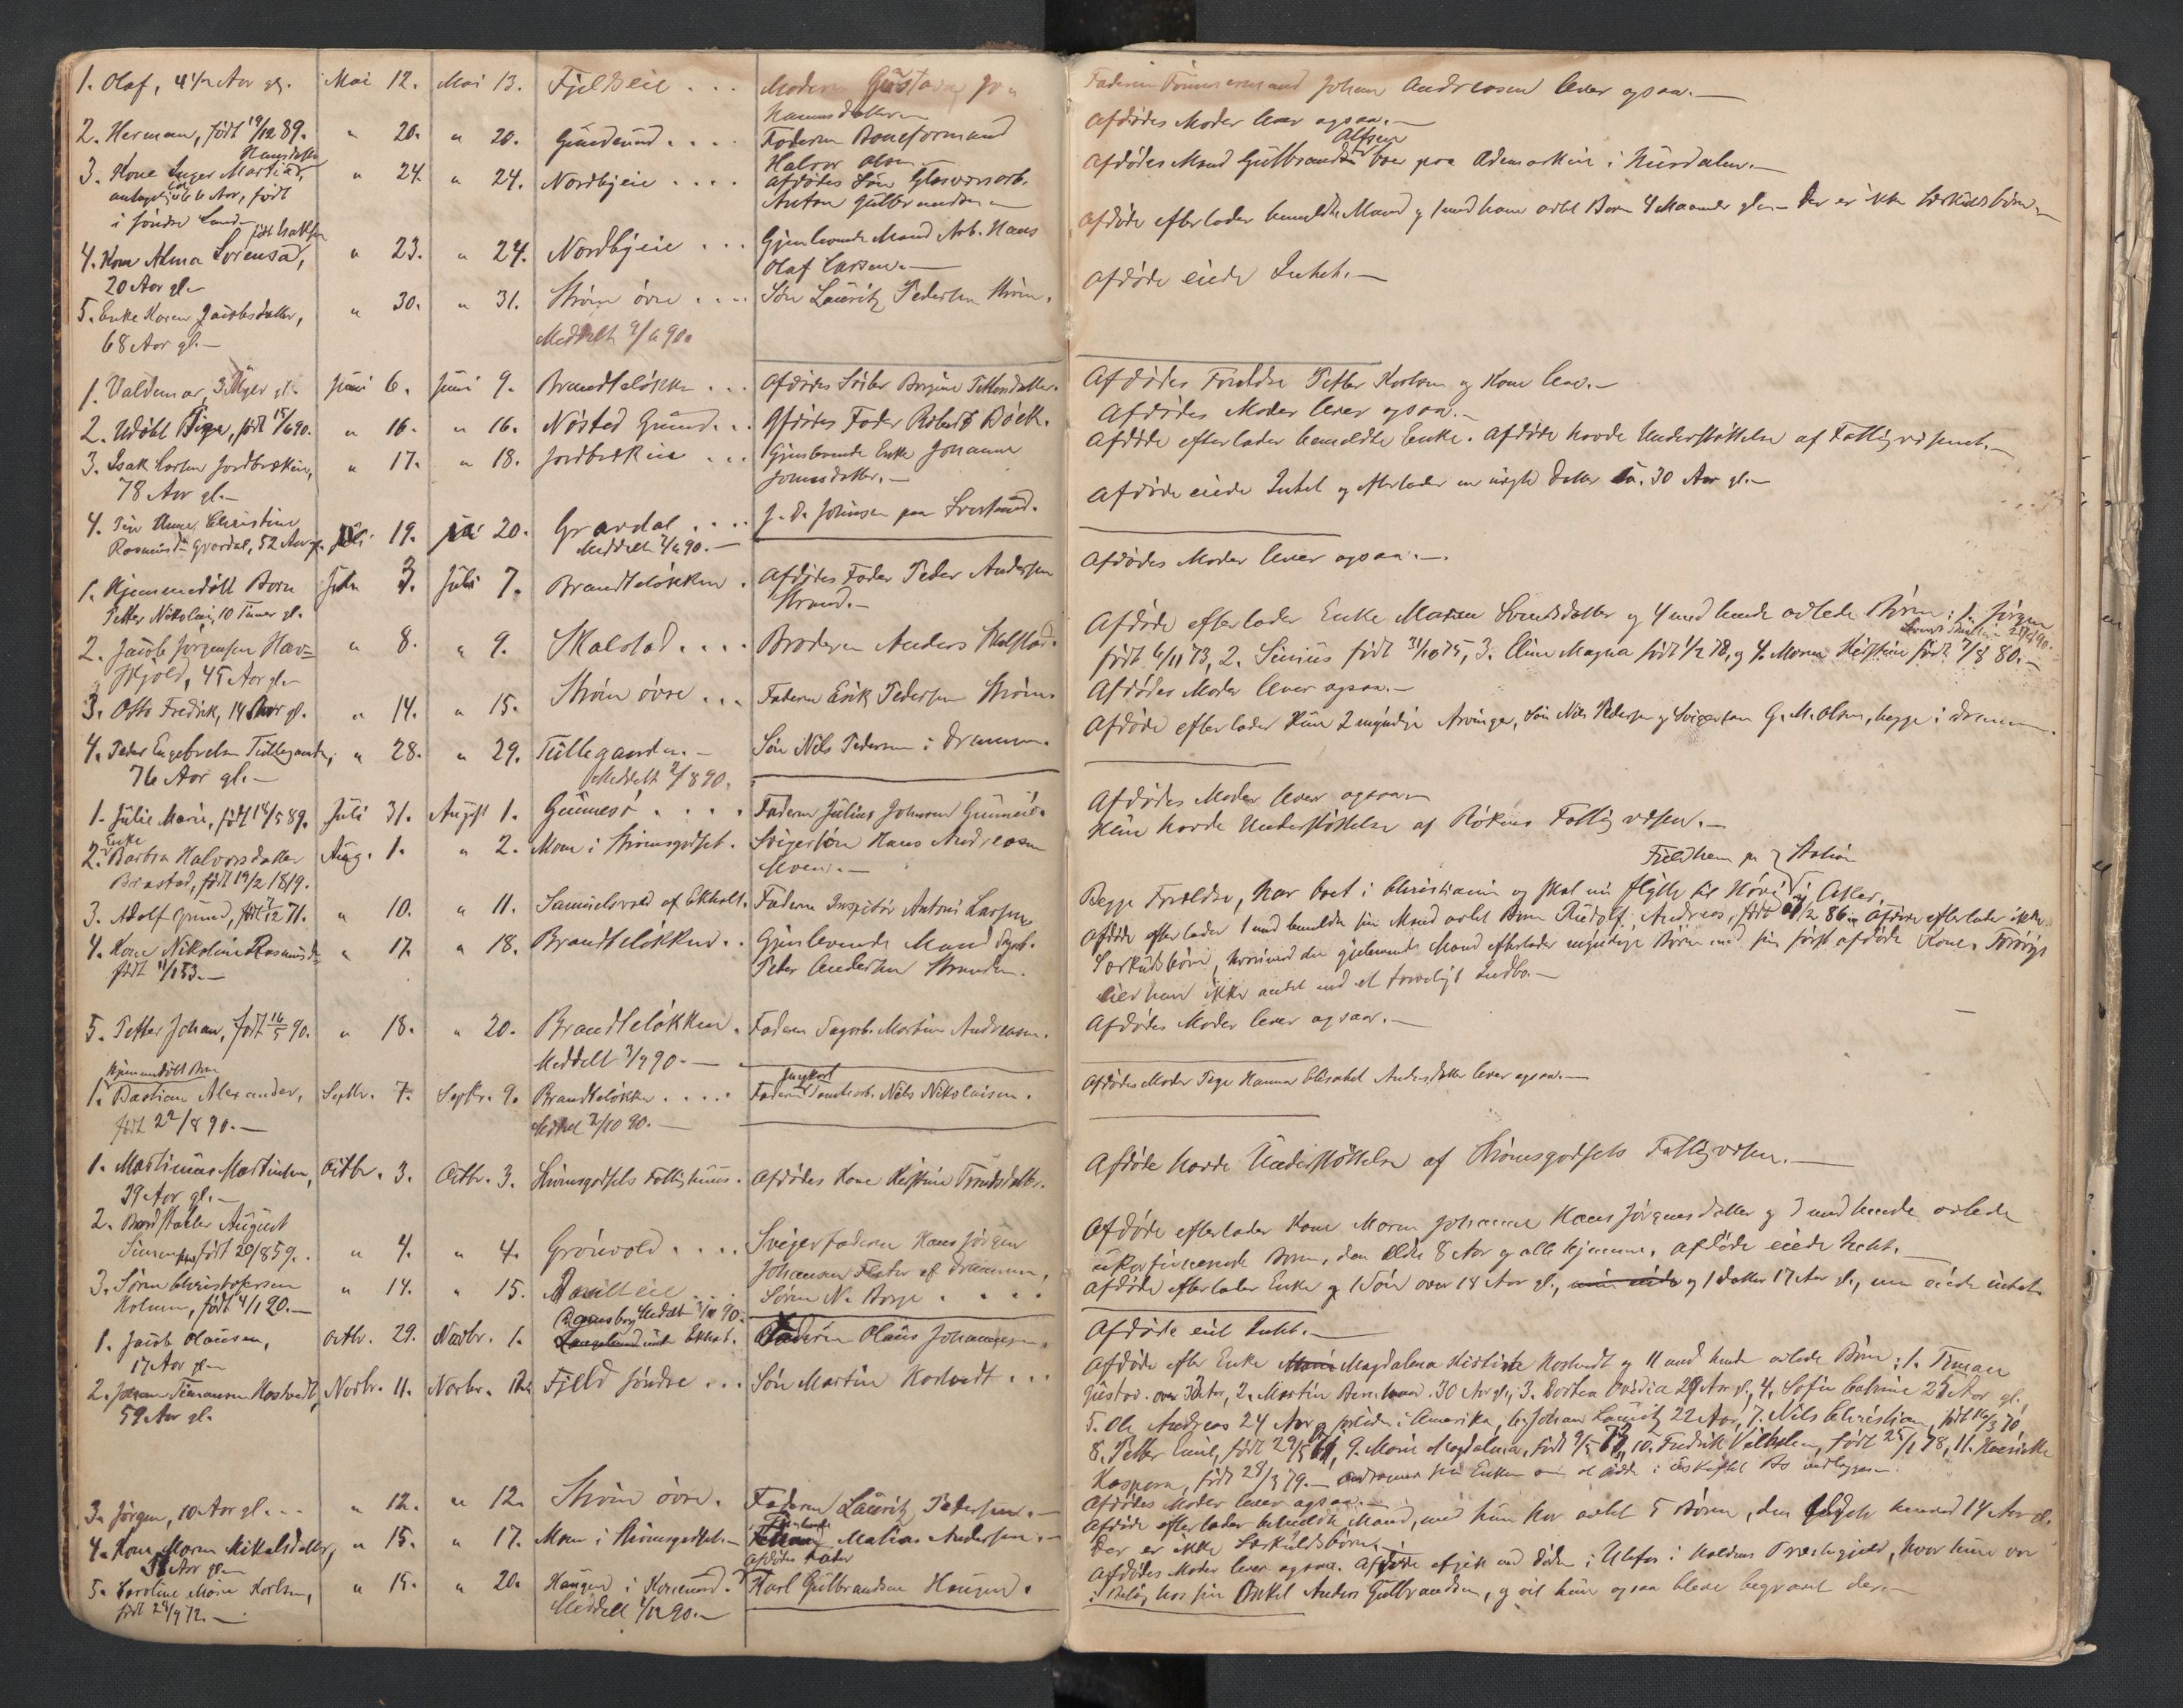 1. Olaf, 4 1/2 Aar gl. Mai 12. Mai 13. Fjeldseie . . . Moderen Gustava Jo-
hannesdatter
2. Herman, født 19/12 89. " 20. " 20. Gundesund . . . . Faderen Boneformand
Halvor Olsen
3. Kone Inger Martia Hansdatter, " 24. " 24. Nordbyeie . . . . Afdødes Søn Glasværksarb.
antagelig 66 Aar, født Anton Gulbrandsen
i Søndre Land
4. Kone Alma Lorensa, født Isaksen " 23. " 24. Nordbyeie . . . Gjenlevende Mand Arb. Hans
20 Aar gl. Olaf Larsen.
5. Enke Karen Jacobsdatter, " 30. " 31. Strøm øvre . . . . Søn Lauritz Pedersen Strøm.
68 Aar gl. Meddelt 9/6 90.
1. Valdemar, 3 Uger gl. Juni 6. Juni 9. Brandtsløkken . . . Afdødes Søster Borgine Pettersdatter.
2. Udøbt Pige, født 15/6 90. " 16. " 16. Nøsted Grund . . . Afdødes Fader Robert Bøck.
3. Isak Larsen Jordbrækeie, " 17. " 18. Jordbrækeie . . . Gjenlevende Enke Johanne
78 Aar gl. Jonasdatter.
4. Pige Anne Christine Juni 19. Juni 20. Grardal . . . . J. D. Johnsen paa Svartsund.
Rasmusd. Gvardal, 52 Aar gl. Meddelt 4/6 90.
1. Hjemmedøbt Barn Juli 3. Juli 7. Brandtsløkken . Afdødes Fader Peder Andersen
Petter Nikolai, 10 Timer gl. Strand.
2. Jacob Jørgensen Hav= " 8. " 9. Skalstad . . . . Broderen Anders Skalstad.
skjold, 45 Aar gl.
3. Otto Fredrik, 14 Aar gl. " 14. " 15. Strøm øvre . . . Faderen Erik Pedersen Strøm
4. Peder Engebretsen Tullegarden, " 28. " 29. Tullegarden. Søn Nils Pedersen i Drammen.
76 Aar gl. Meddelt 2/8 90.
1. Julie Marie, født 14/5 89. Juli 31. August 1. Gunnesø . . . . Faderen Julius Johnsen Gunnesø.
2. Enke Barbra Halvorsdatter Aug. 1. " 2. Moen i Strømsgodset. Svigersøn Hans Andreasen
født 19/2 1819. Moen.
3. Adolf Gjund, født 7/12 71. " 10. " 11. Samuelsvold af Ekholt. Faderen Inspektør Antoni Larsen
4. Kone Nikoline Rasmusd. " 17. " 18. Brandtsløkken . . Gjenlevende Mand Dagarb.
født 11/1 53. Peder Andersen Stranden.
5. Petter Johan, født 16/5 90. " 18. " 20. Brandtsløkken. Faderen Dagarb. Martin Andreasen.
Meddelt 3/9 90.
Hjemmedøbt Barn
1. Bastian Alexander, Septbr. 7. Septbr. 9. Brandtsløkken . . . . Faderen Ungkarl Tomtearb. Nils Nikolaisen.
født 22/8 90. Meddelt 2/10 90.
1. Martinius Martinsen, Octbr. 3. Octbr. 3. Strømsgodsets Fattighuus. Afdødes Kone Kirstine Trondsdatter.
39 Aar gl.
2. Bordstabler August
Simensen, født 20/8 59. " 4. " 4. Grønvold . . . . Svigerfaderen Hans Jørgen
Johansen Flater af Drammen,
3. Søren Christofersen " 14. " 15. Søren N. Borge . . . .
Holmen, født 4/1 20. Meddelt
1. Jacob Olausen, Octbr. 29. Novbr. 1. Faderen Olaus Johannesen
17 Aar gl.
2. Johan Timansen Kostvedt, Novbr. 11. Novbr. Fjeld søndre . . . Søn Martin Kostvedt . . .
59 Aar gl.
3. Jørgen, 10 Aar gl. . . " 12. " 12. Strøm øvre. Faderen Lauritz Pedersen.
4. Kone Maren Mikalsdatter, " 15. " 17. Moen i Strømsgodset. Gjenlevende Matias Andersen.
Aar gl. Afdødes Fader
5. Caroline Marie Karlsen, " 15. " 20. Haugen i Karl Gulbrandsen Haugen.
født 28/9 72. Meddelt 1/12 90.
Faderen Tømmermand Johan Andreasen lever ogsaa.
Afdødes Moder lever ogsaa.
Afdødes Mand Gulbrand Alfsen boer paa Ødemarken i Hurdalen.
Afdøde efterlader bemeldte Mand og 1 med ham avlet Barn 4 Maaneder gl. Der er ikke Særkuldsbørn.
Afdøde eiede Intet.
Afdødes Forældre Petter Karlsen og Kone lever.
Afdødes Moder lever ogsaa.
Afdøde efterlader bemeldte Enke. Afdøde havde Understøttelse af Fattigvæsenet.
Afdøde eiede Intet og efterlader en uægte Datter ca. 30 Aar gl.
Afdødes Moder lever ogsaa.
Afdøde efterlader Enke Maren Svendsdatter og 4 med hende avlede Børn: 1. Jørgen
født 6/11 73, 2. Sinius født 31/10 75, 3. Oline Magna født 1/2 78, og 4. Maren Kirstine født 7/8 80.
Afdødes Moder lever ogsaa.
Afdøde efterlader Kun 2 myndige Arvinger, Søn Nils Pedersen og Svigersøn G. M. Olsen, begge i Drammen.
Afdødes Moder lever ogsaa
Hun havde Understøttelse af Røkens Fattigvæsen.
Fjeldhem pr Station
Begge Forældre, har boet i Christiania og skal nu flytte til i Asker,
Afdøde efterlader 1 med bemeldte sin Mand avlet Barn Rudolf Andreas, født 21/2 86. Afdøde efterlader ikke
Særkuldsbørn, hvorimod den gjenlevende Mand efterlader myndige Børn med sin først afdøde Kone. Forøvrigt
eier han ikke andet end et tarveligt Indbo.
Afdødes Moder lever ogsaa.
Afdødes Moder Pige Hanna Elisabet Andersdatter lever ogsaa.
Afdøde havde Understøttelse af Strømsgodsets Fattigvæsen.
Afdøde efterlader Kone Maren Johanne Hans Jørgensdatter og 3 med hende avlede
ukonfirmerede Børn, den ældste 8 Aar og alle hjemme. Afdøde eiede Intet.
Afdøde efterlader Enke og 1 Søn over 18 Aar gl., og 1 Datter 17 Aar gl., men eiede intet.
Afdøde eied Intet.
Afdøde efter Enke Magdalena Kirstine Kostvedt og 11 med hende avlede Børn: 1. Timan
Gustav over Aar, 2. Martin 30 Aar gl., 3. Dortea Ovidia 29 Aar gl., 4. Sofie Catrine 25 Aar gl.,
5. Ole Andreas 24 Aar i Amerika, 6. Johan Lauritz 22 Aar, 7. Nils Christian, født 16/3 70,
8. Petter Emil, født 29/5 9. Marie Magdalena, født 10. Fredrik Vilhelm, født 25/1 78, 11. Henriette
Kaspara, født 28/3 79. Andragende fra Enken om at sidde i uskiftet Bo vedlægges.
Afdødes Moder lever ogsaa.
Afdøde efterlader bemeldte Mand, med hun har avlet 5 Børn, den ældste henved 14 Aar gl.
Der er ikke Særkuldsbørn.
Afdødes Moder lever ogsaa. Afdøde afgik ved Døden i Ulefos i Holdens Præstegjeld, hvor hun var
i Besøg hos sin Onkel Anders Gulbrandsen, og vil hun ogsaa blive begravet der.